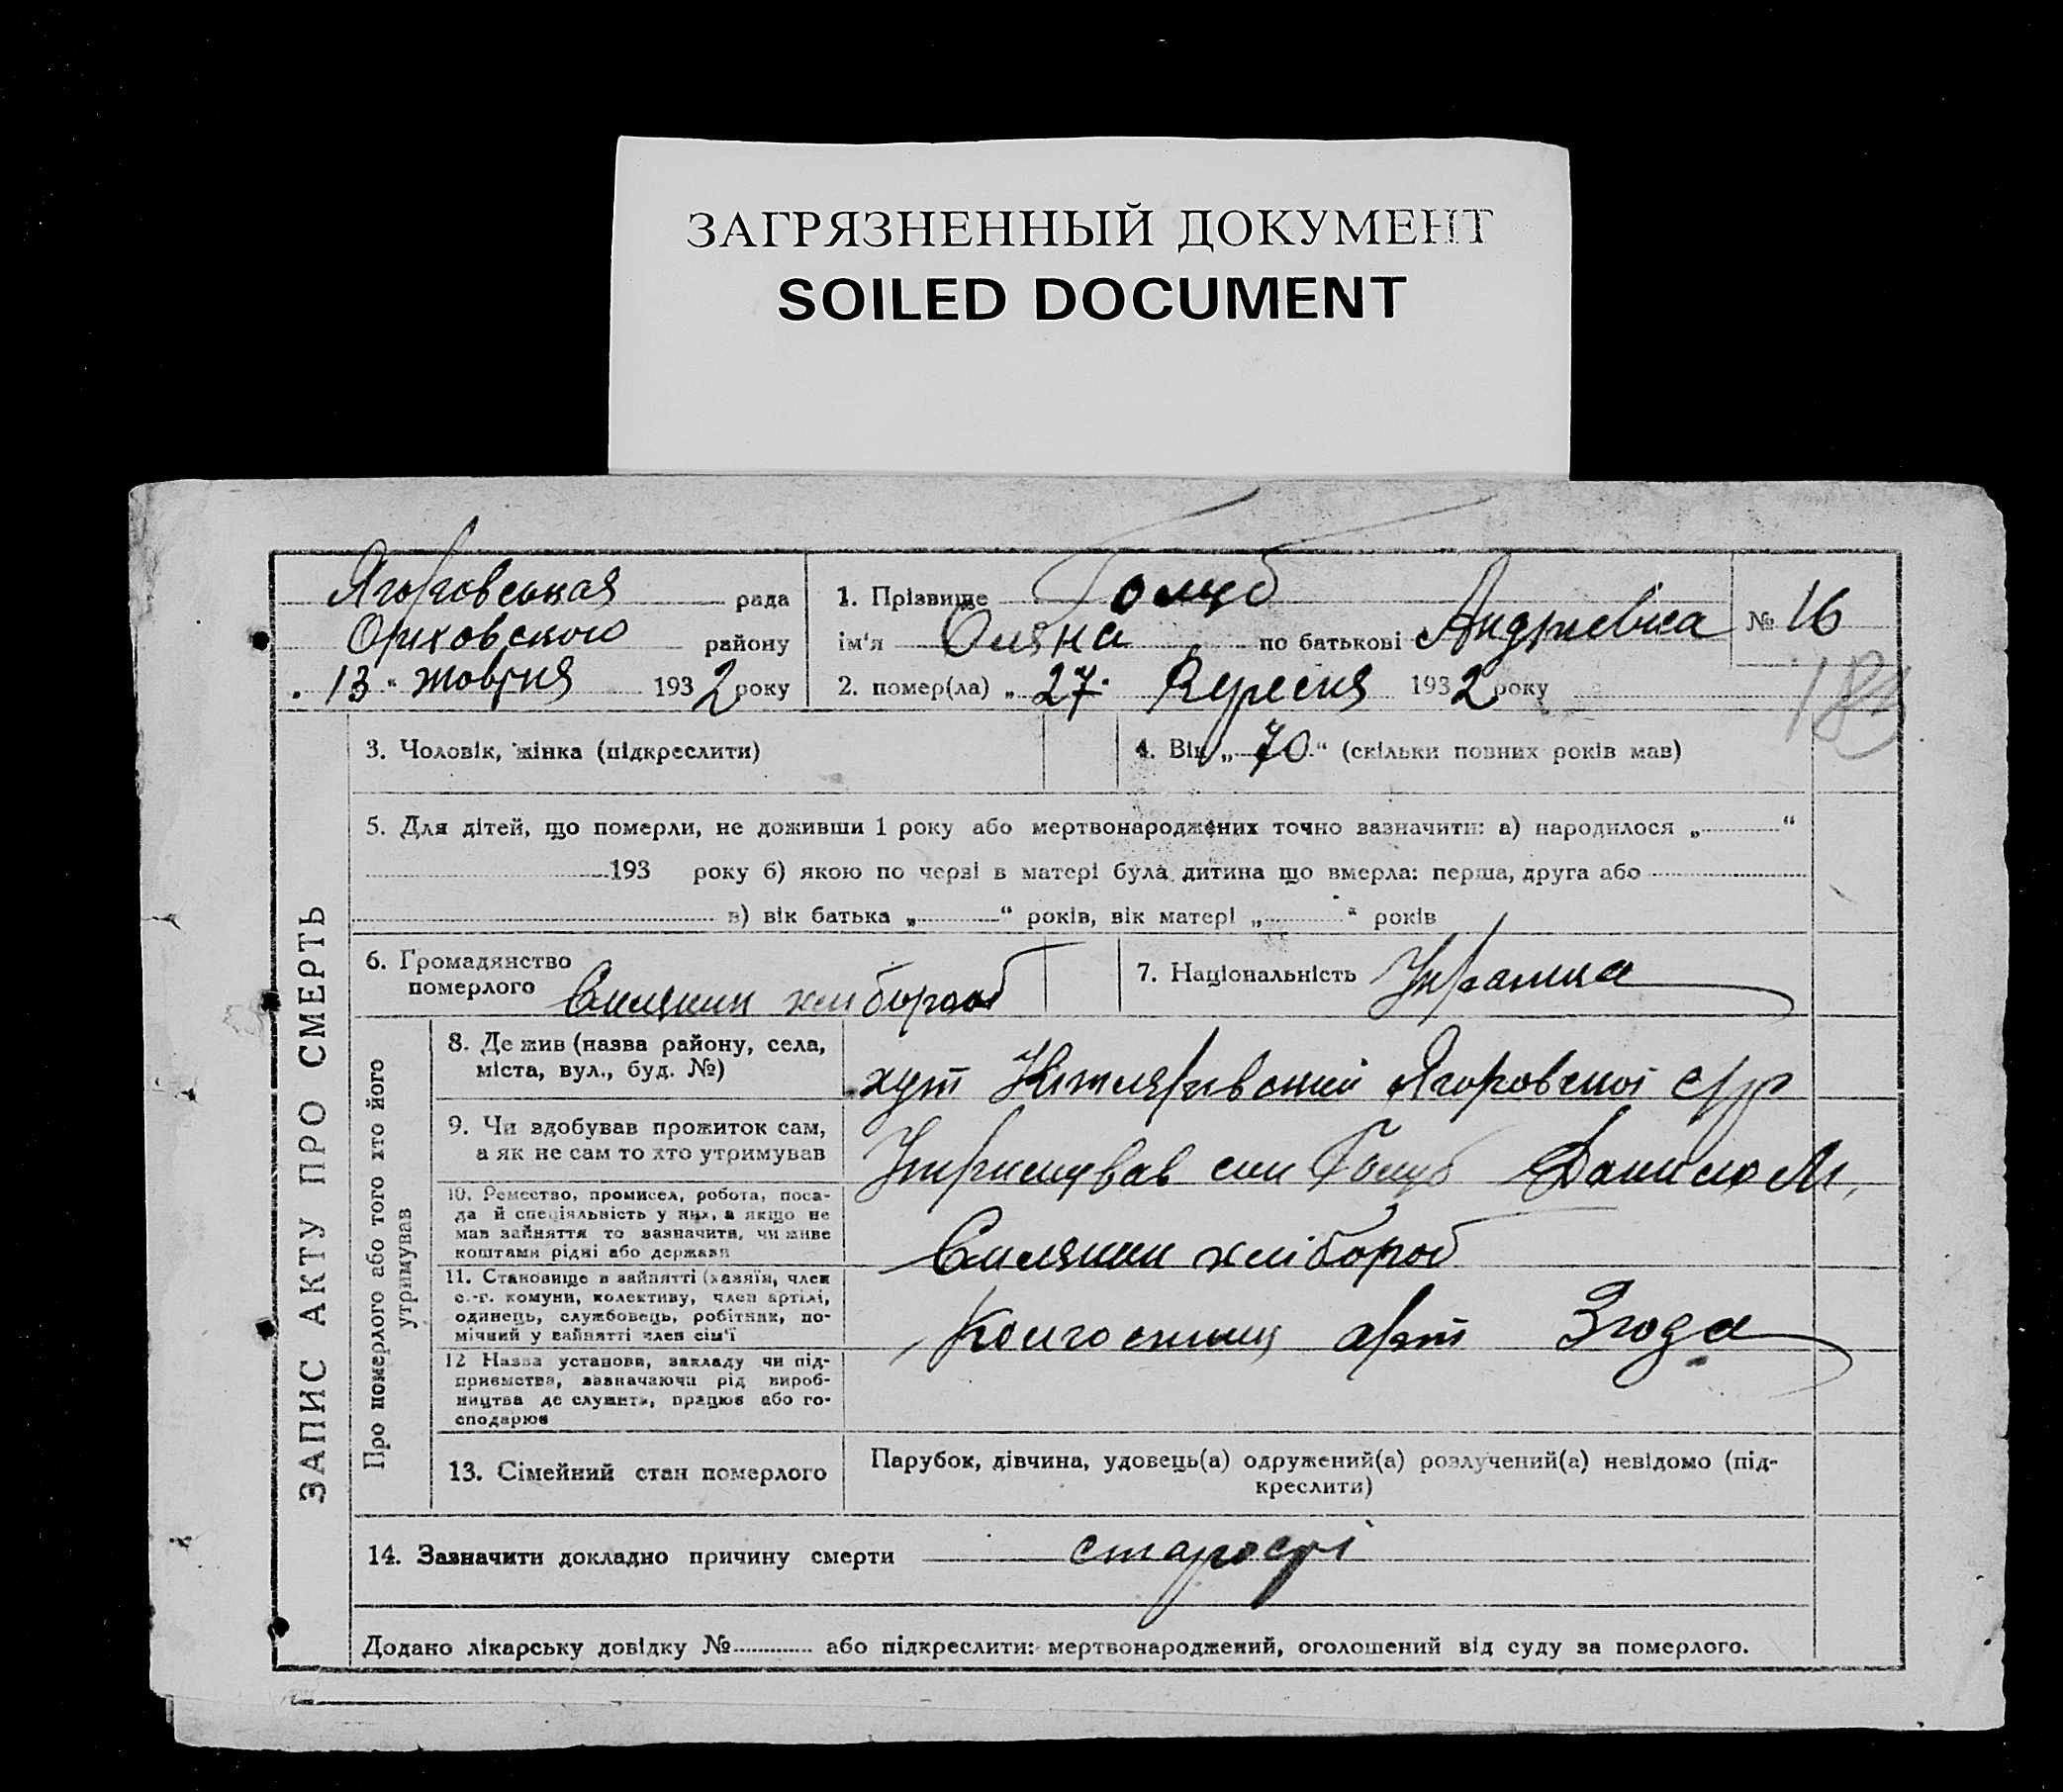 ЗАГРЯЗНЕННЫЙ ДОКУМЕНТ
SOILED DOCUMENT
рада
Ориховського району
„13“ жовтня 1932 року
1. Прізвище Голуб
ім'я Оляна по батькові Андриевна
2. помер(ла) „27“ Вересня 1932 року
№ 16
ЗАПИС АКТУ ПРО СМЕРТЬ
3. Чоловік, жінка (підкреслити)
4. Вік „70“ (скільки повних років мав)
5. Для дітей, що померли, не доживши 1 року або мертвонароджених точно зазначити: а) народилося „ “
193 року б) якою по черзі в матері була дитина що вмерла: перша, друга або
в) вік батька „ “ років, вік матері „ “ років
6. Громадянство
померлого Силянин хлібороб
7. Національність Украинка
Про померлого або того хто його
утримував
8. Де жив (назва району, села,
міста, вул., буд. №)
хут
9. Чи здобував прожиток сам,
а як не сам то хто утримував
Утримував син Голуб Данило М.
10. Ремество, промисел, робота, поса-
да й спеціяльність у них, а якщо не
мав зайняття то зазначити, чи живе
коштами рідні або держави
Силянин хлібороб
11. Становище в зайнятті (хазяїн, член
с.-г. комуни, колективу, член артілі,
одинець, службовець, робітник, по-
мічний у зайнятті член сім'ї
Колгоспниц арт Згода
12 Назва установи, закладу чи під-
приємства, зазначаючи рід вироб-
ництва де служить, працює або го-
сподарює
13. Сімейний стан померлого
Парубок, дівчина, удовець(а) одружений(а) розлучений(а) невідомо (під-
креслити)
14. Зазначити докладно причину смерти старості
Додано лікарську довідку № або підкреслити: мертвонароджений, оголошений від суду за померлого.